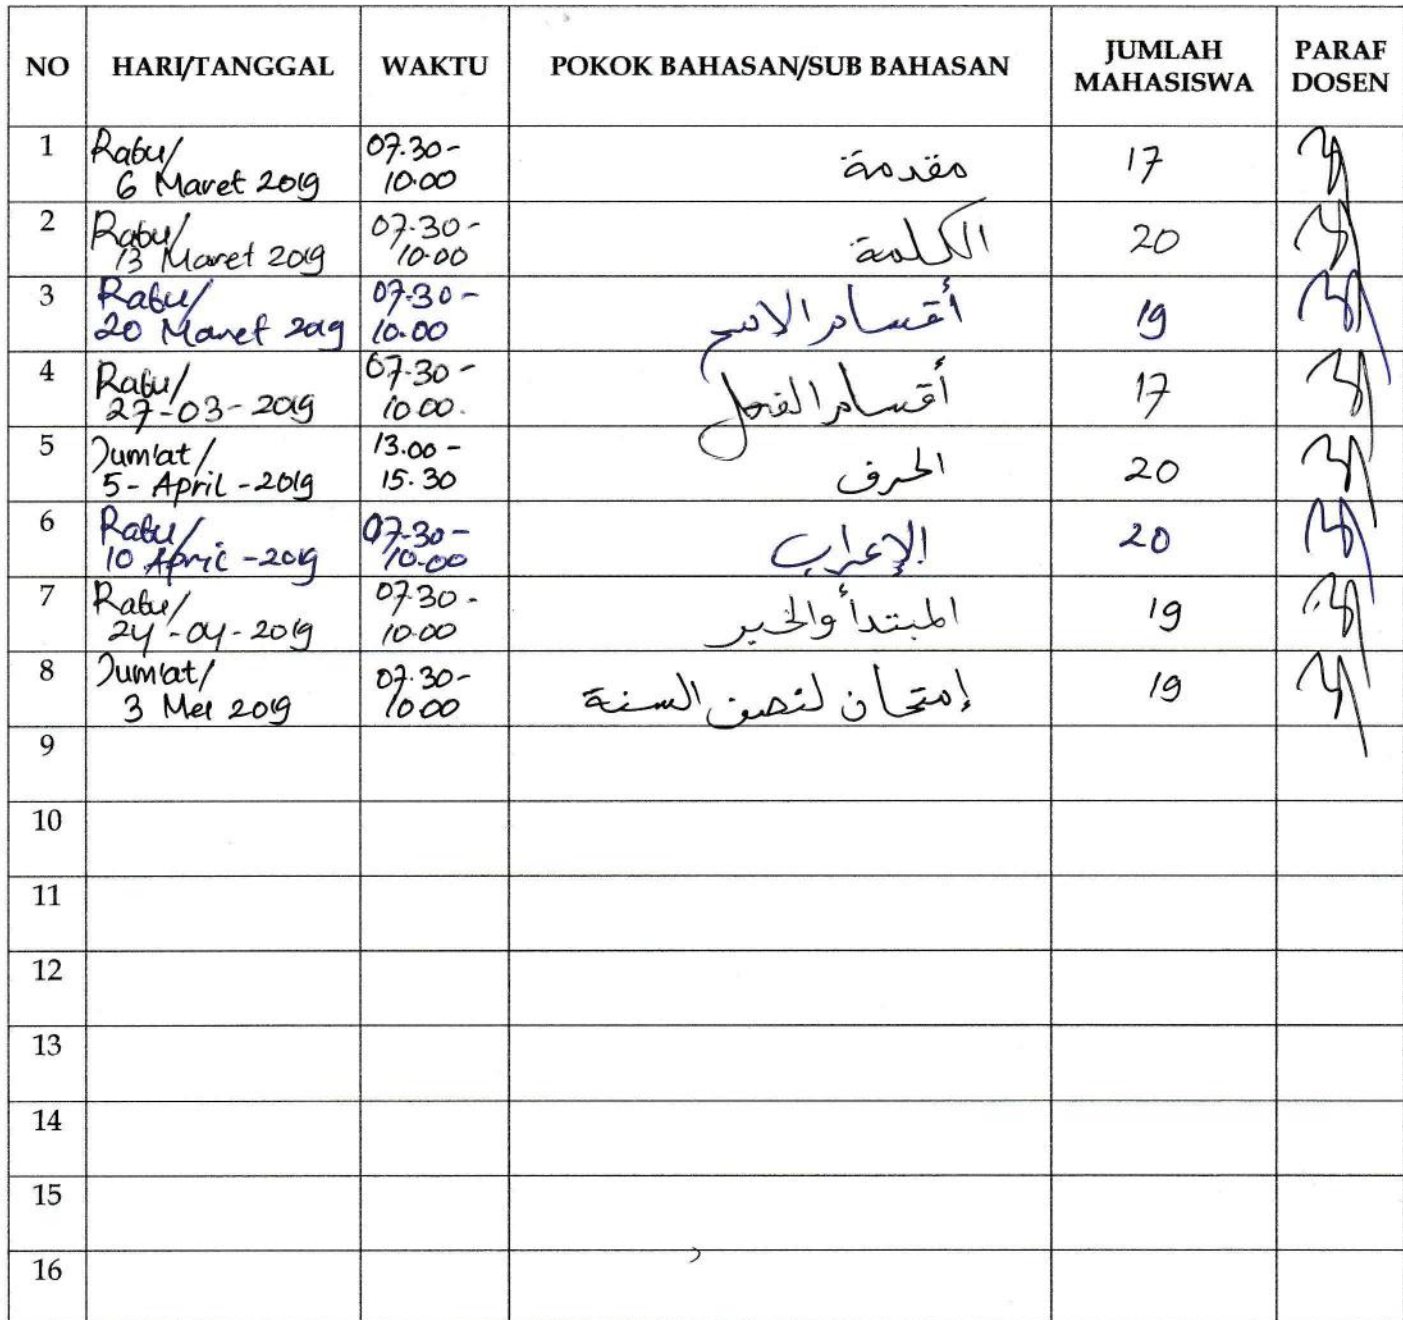 NO HARI/TANGGAL WAKTU POKOK BAHASAN/SUB BAHASAN JUMLAH MAHASISWA PARAF DOSEN
1 Rabu/ 07.30-
6 Maret 2019 10.00 مقدمة 17
2 Rabu/ 07.30-
13 Maret 2019 10.00 الكلمة 20
3 Rabu/ 07.30-
20 Maret 2019 10.00 أقسام الاسم 19
4 Rabu/ 07.30-
27-03-2019 10.00. أقسام الفعل 17
5 Jum'at/ 13.00-
5-April-2019 15.30 الحرف 20
6 Rabu/ 07.30-
10 April-2019 10.00 الإعراب 20
7 Rabu/ 07.30-
24-04-2019 10.00 المبتدأ والخبر 19
8 Jum'at/ 07.30-
3 Mei 2019 10.00 إمتحان لنصف السنة 19
9
10
11
12
13
14
15
16